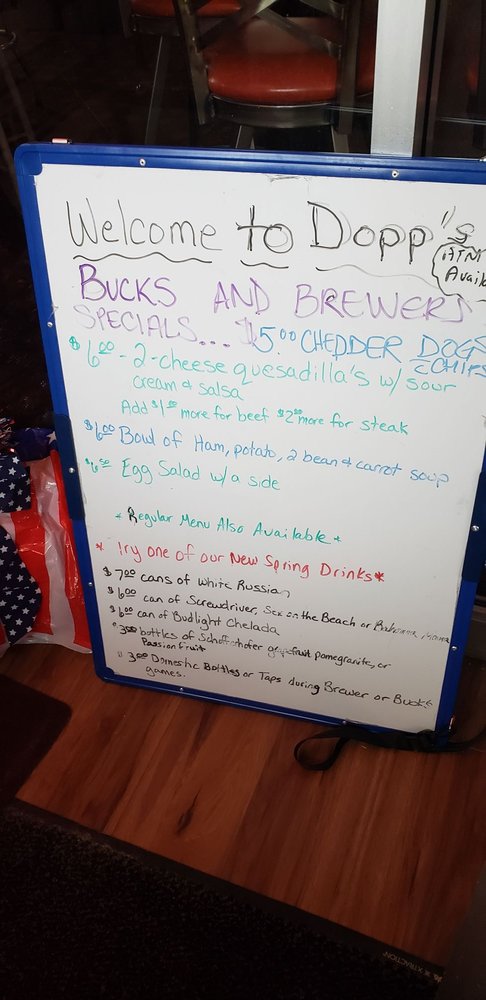 Welcome to Dopp's
(ATM
Availa
BUCKS AND BREWERS
SPECIALS.... $5.00 CHEDDER DOGS
C CHIPS
$6.00 - 2-cheese quesadilla's w/ sour
cream & salsa
Add $1.50 more for beef $2.00 more for steak
$6.00 Bowl of Ham, potato, 2 bean & carrot soup
$6.50 Egg Salad w/a side
* Regular Menu Also Available *
* Try one of our New Spring Drinks *
$7.00 cans of White Russian
$6.00 can of Screwdriver, Sex on the Beach or Bahama Mama
$6.00 can of Budlight Chelada
$3.50 bottles of Schofferhofer grapefruit pomegranite, or
Passion fruit
3.00 Domestic Bottles or Taps during Brewer or Bucks
games.
XTRACTION